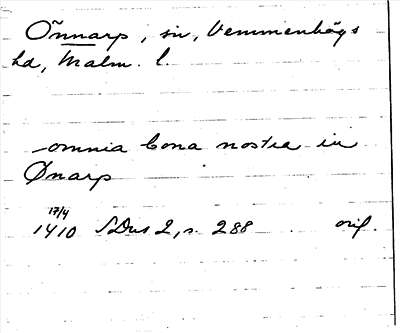 Önnarp, sn, Vemmenhögs
hd, Malm. l.
omnia bona nostra in
Ønarp
17/4
1410 SDns 2, s. 288 orig.